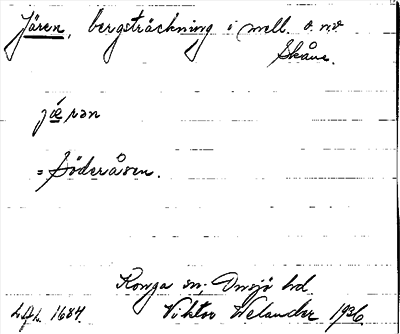 Jären, bergsträckning i mell. o. n.v.
Skåne.
jǽrən
= Söderåsen.
Konga sn; Onsjö hd
LAL. 1684. Viktor Welander 1936